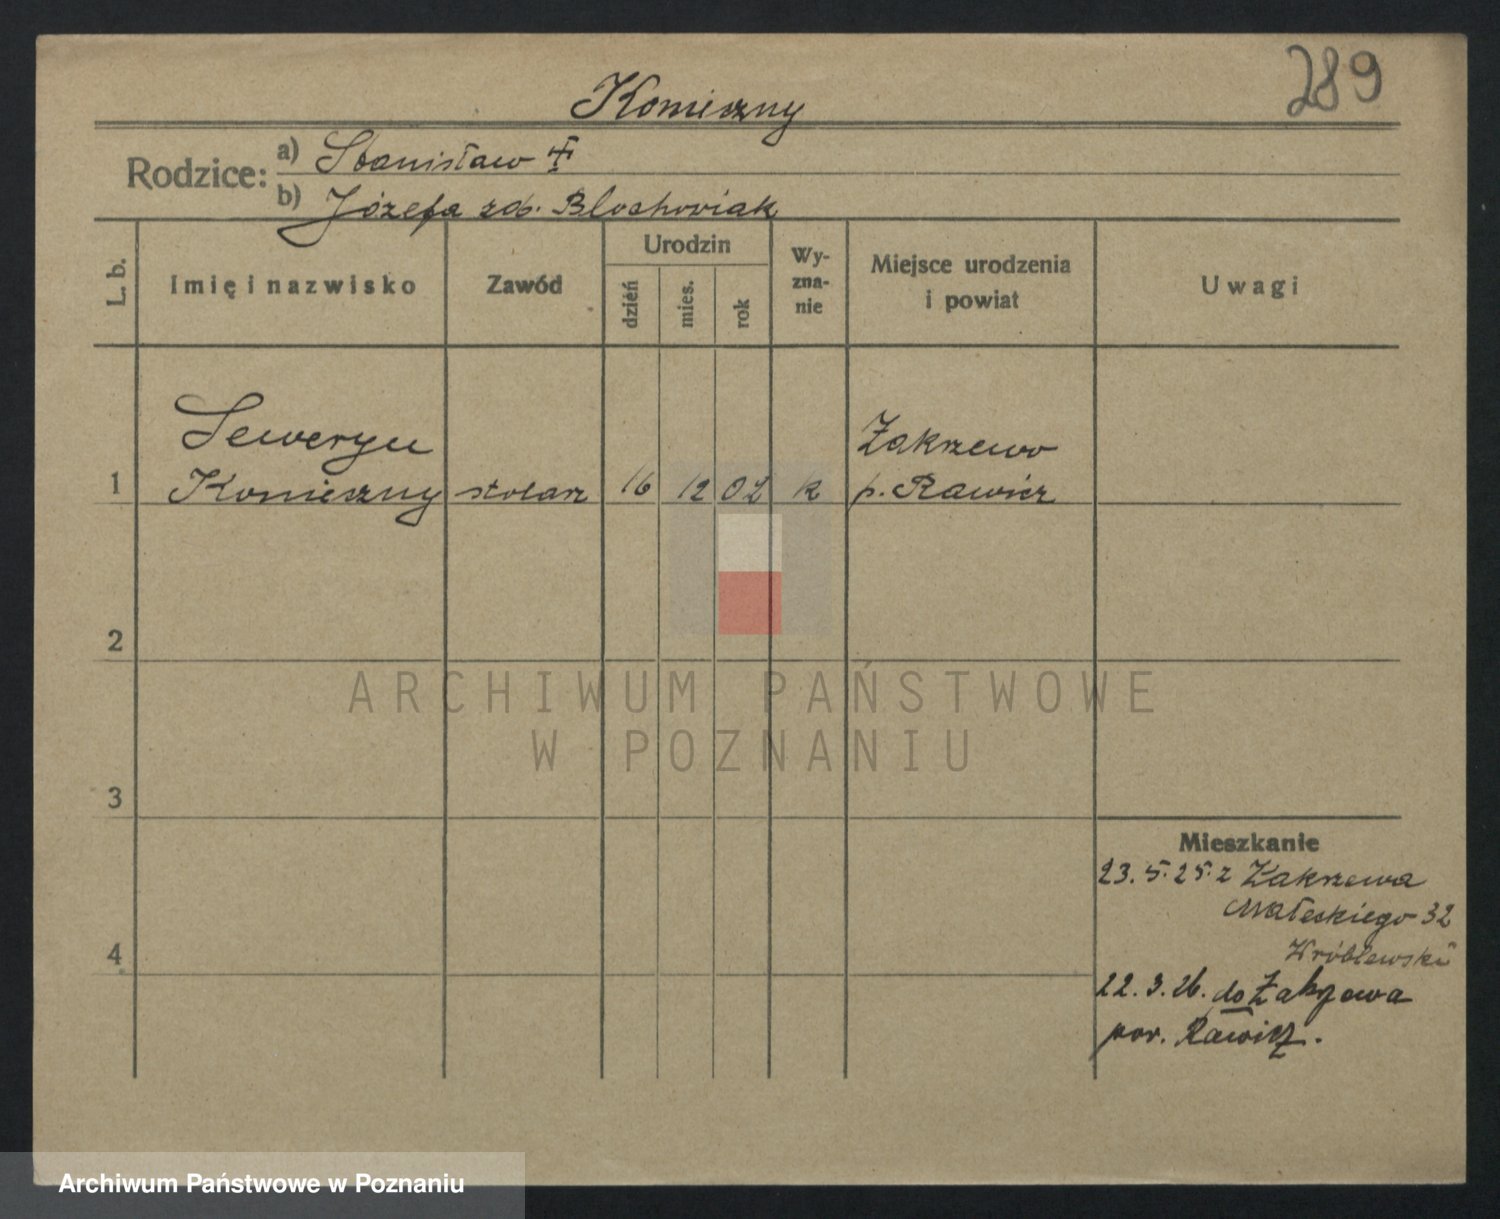 289
Konieczny
Rodzice: a) Stanisław ☨
b) Józefa zd. Blochowiak
L. b.
Imię i nazwisko
Zawód
Urodzin
dzień
mies.
rok
Wy-
zna-
nie
Miejsce urodzenia
i powiat
Uwagi
Seweryn
Zakrzewo
1 Konieczny stolarz 16 12 02 k p. Rawicz
2
3
4
Mieszkanie
23.5.25. z Zakrzewa
Małeckiego 32
Wróblewski
22.3.26. do Zakrzewa
pow. Rawicz.
ARCHIWUM PAŃSTWOWE
W POZNANIU
Archiwum Państwowe w Poznaniu